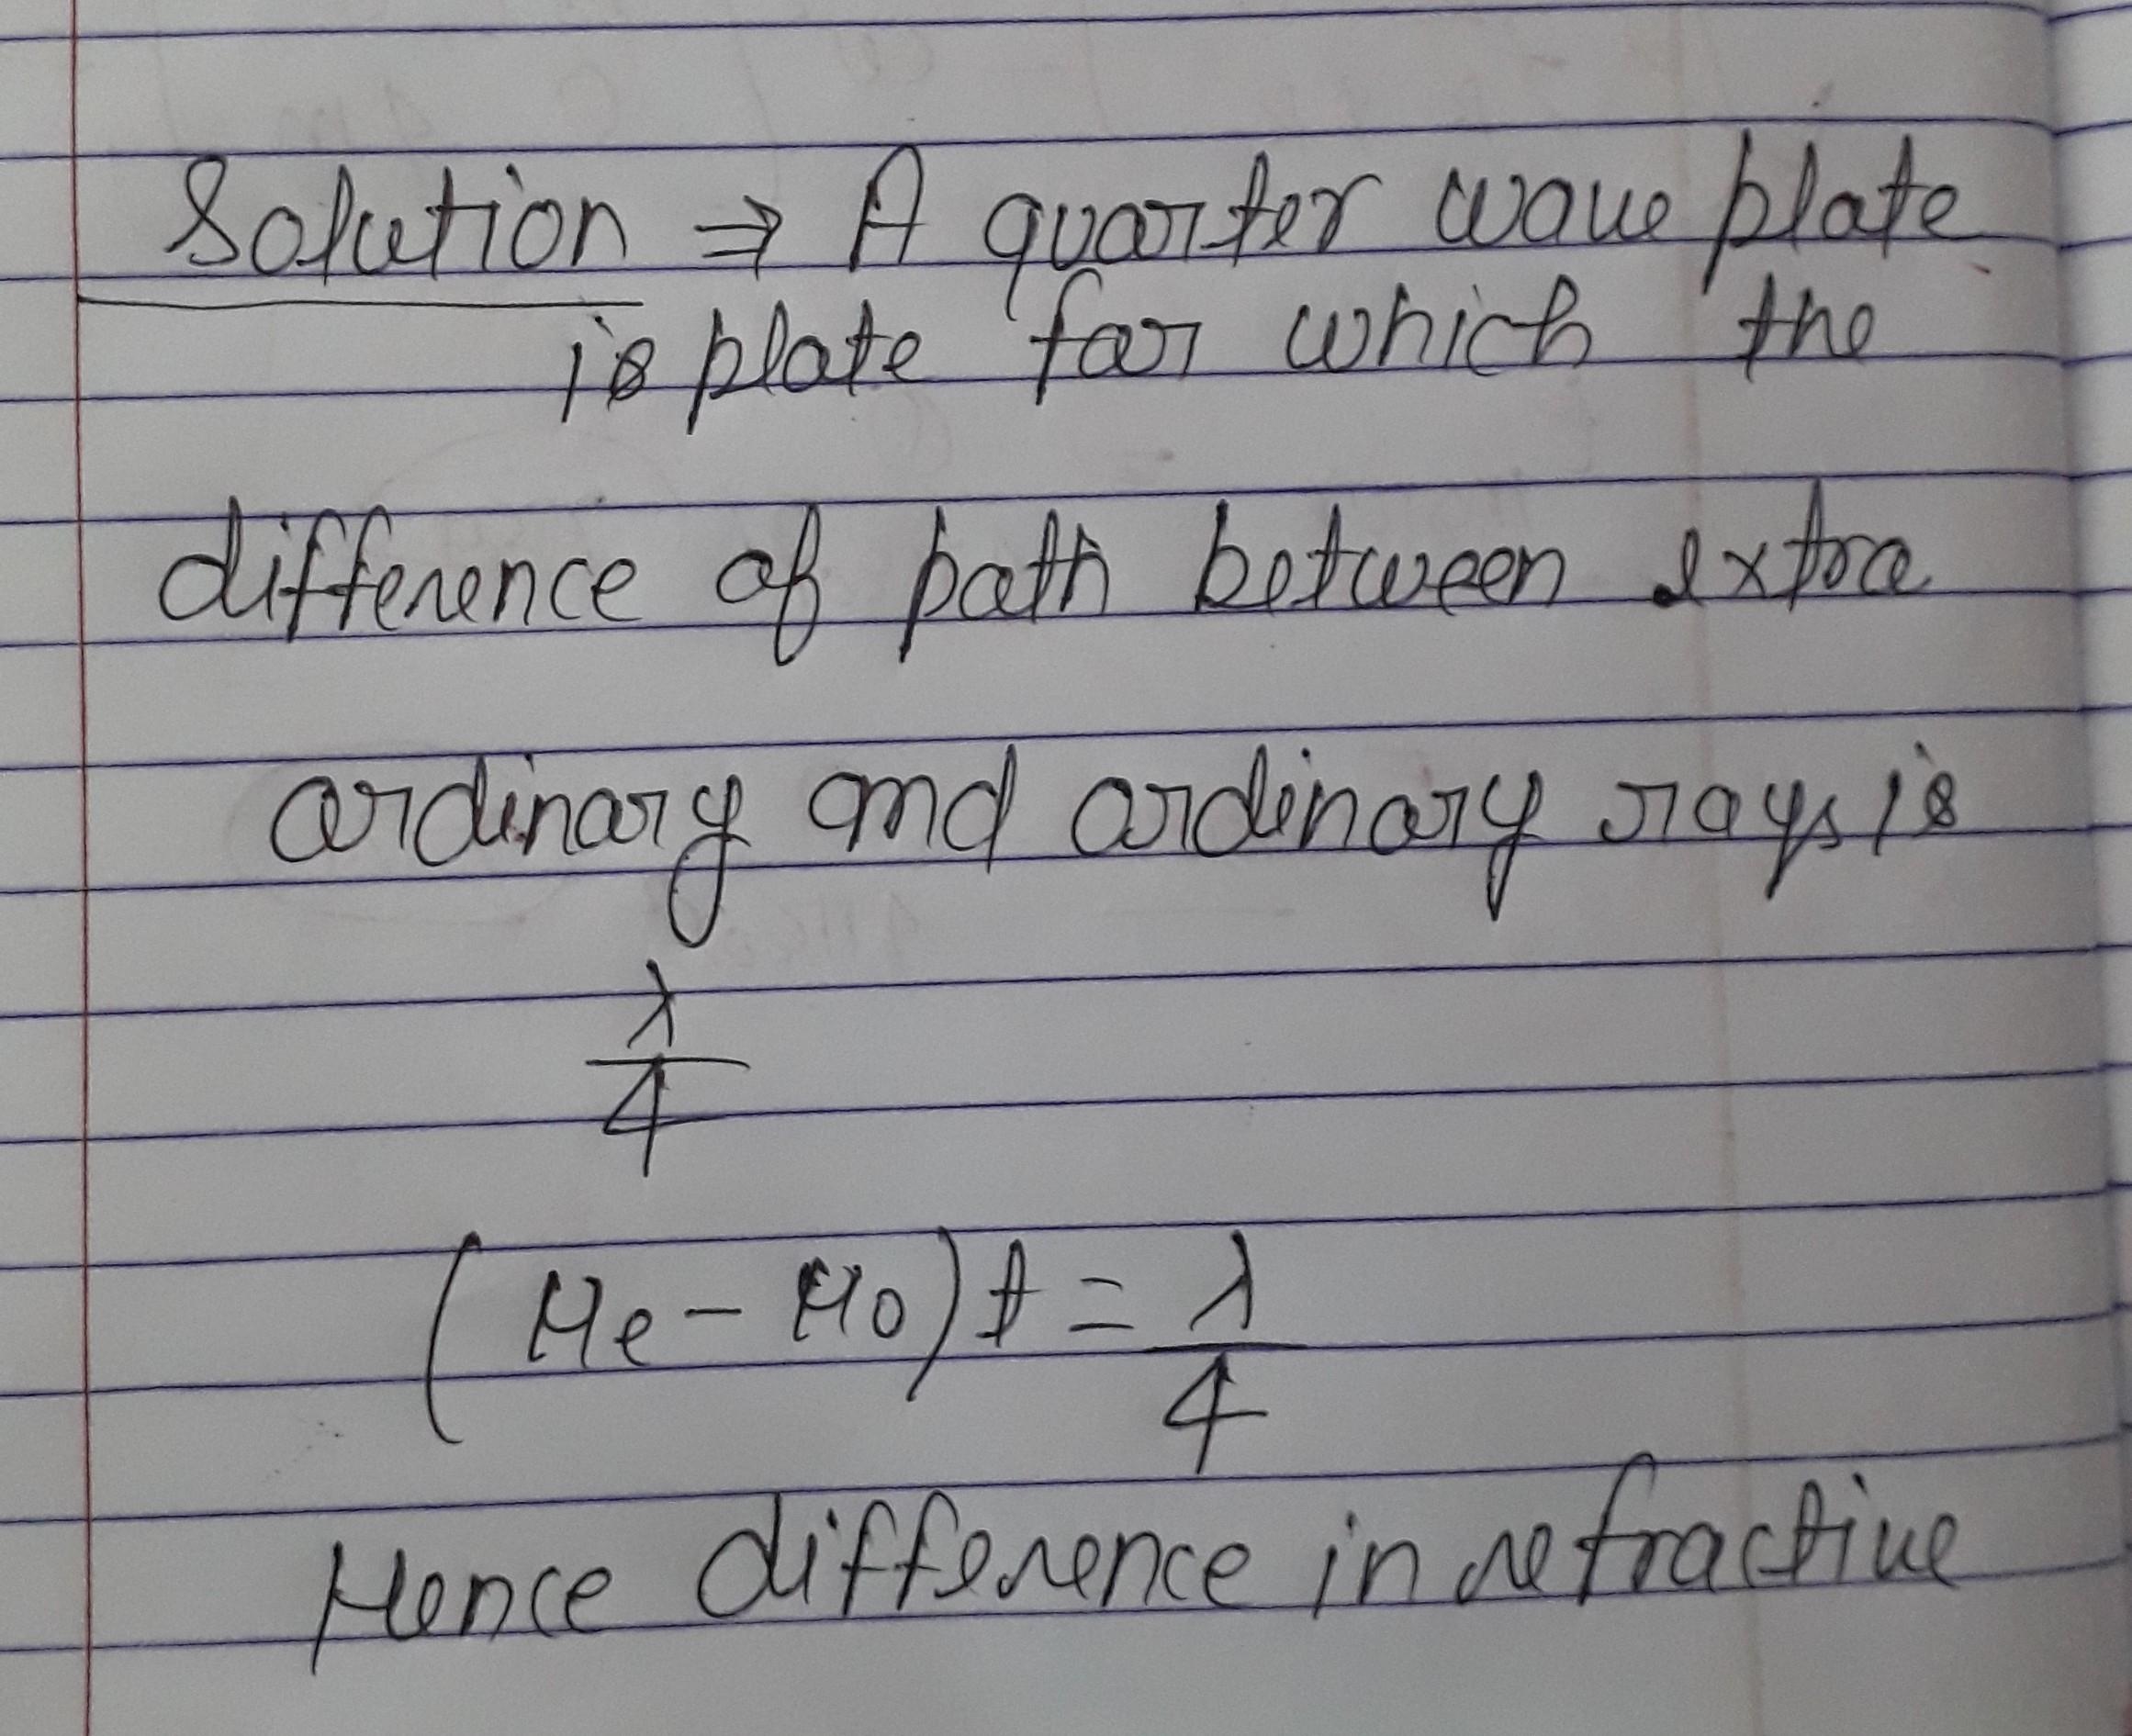 Solution ⇒ A quarter wave plate
is plate for which the
difference of path between extra
ordinary and ordinary rays is
λ/4
(μe - μo) t = λ/4
Hence difference in refractive